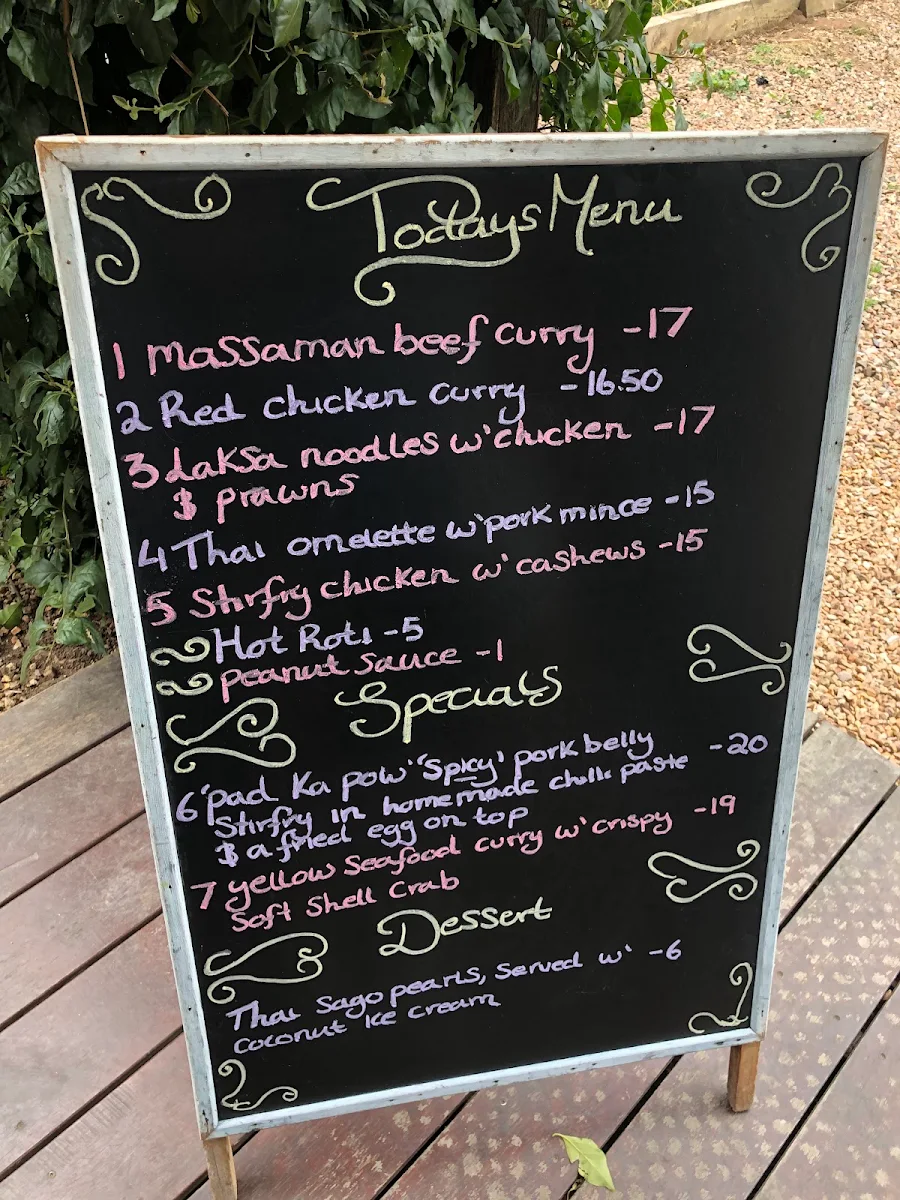 Todays Menu
1 massaman beef curry -17
2 Red chicken curry -16.50
3 Laksa noodles w' chicken -17
$ prawns
4 Thai omelette w' pork mince -15
5 Stirfry chicken w' cashews -15
Hot Roti -5
peanut sauce -1
Specials
6 'pad Ka pow' 'Spicy' pork belly -20
Stirfry in homemade chilli paste
$ a fried egg on top
7 yellow Seafood curry w' crispy -19
Soft Shell Crab
Dessert
Thai Sago pearls, served w' -6
coconut ice cream